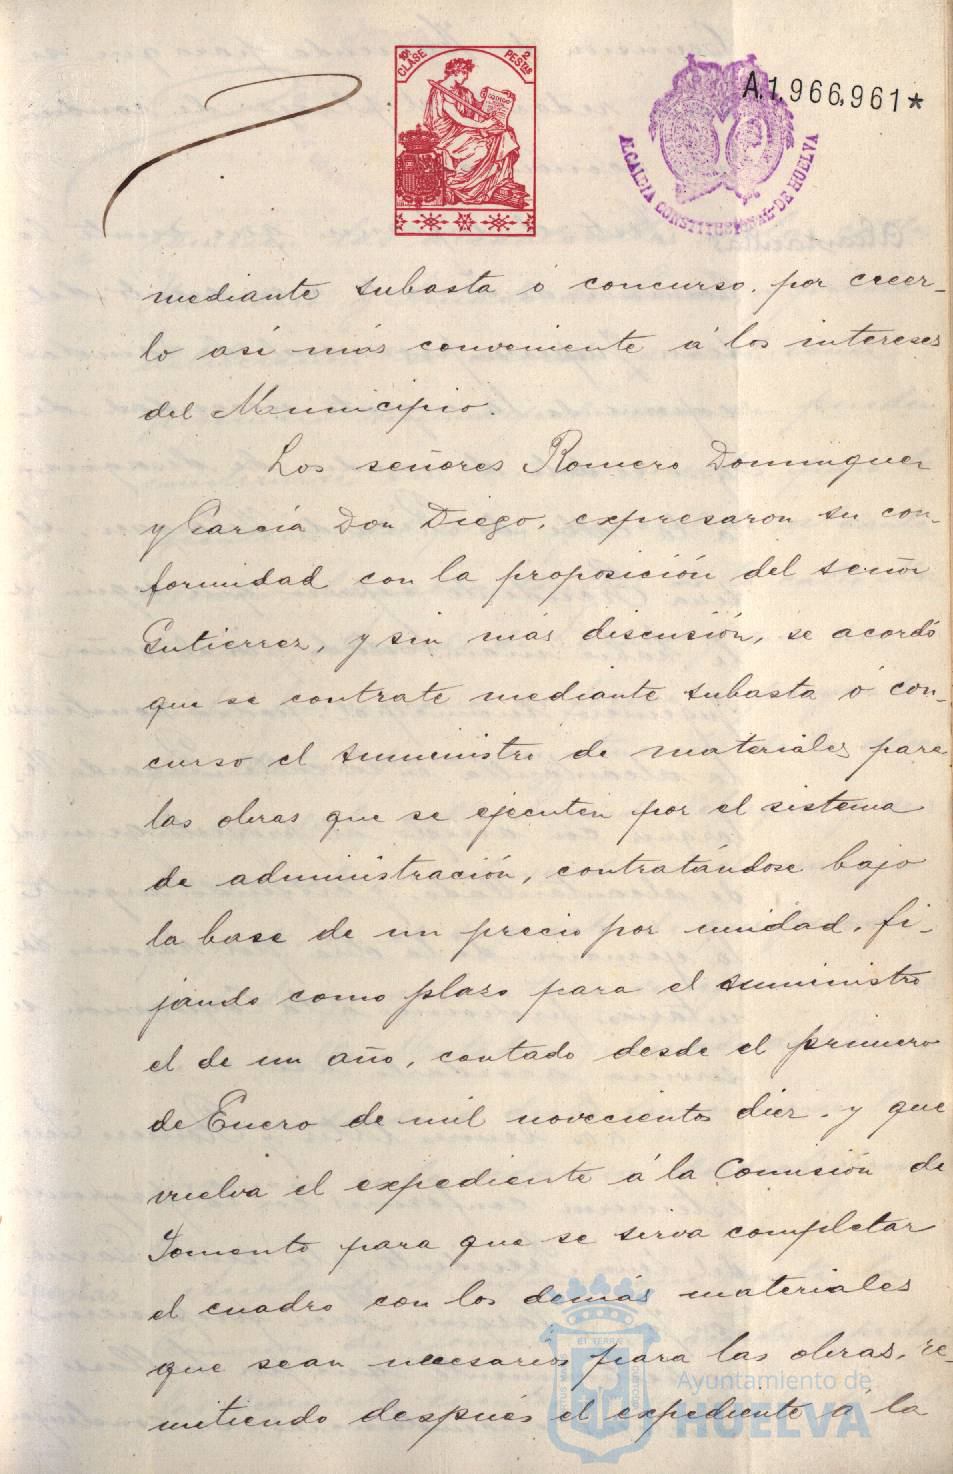 10ª CLASE 2 PESTAS
CODIGO
A.1.966,961*
ALCALDIA CONSTITUCIONAL DE HUELVA
mediante subasta ó concurso, por creer-
lo así más conveniente á los intereses
del Municipio.
Los señores Romero Dominguez
y García Don Diego, expresaron su con-
formidad con la proposición del señor
Gutierrez, y sin más discusión, se acordó
que se contrate mediante subasta ó con-
curso el suministro de materiales para
las obras que se ejecuten por el sistema
de administración, contratándose bajo
la base de un precio por unidad, fi-
jando como plazo para el suministro
el de un año, contado desde el primero
de Enero de mil novecientos diez, y que
vuelva el expediente á la Comisión de
Fomento para que se sirva completar
el cuadro con los demás materiales
que sean necesarios para las obras, re-
mitiendo después el expediente á la
Ayuntamiento de
HUELVA